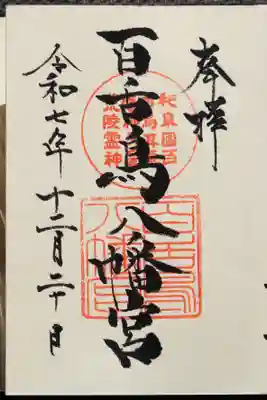 奉拝
百舌鳥八幡宮
令和七年十二月二十日
和泉國百
百舌鳥
八幡宮